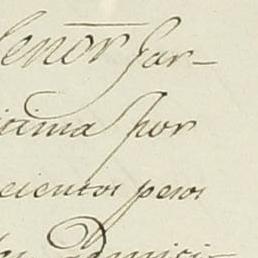 Señor Gar-
icima por
ecientos pesos
Admini-